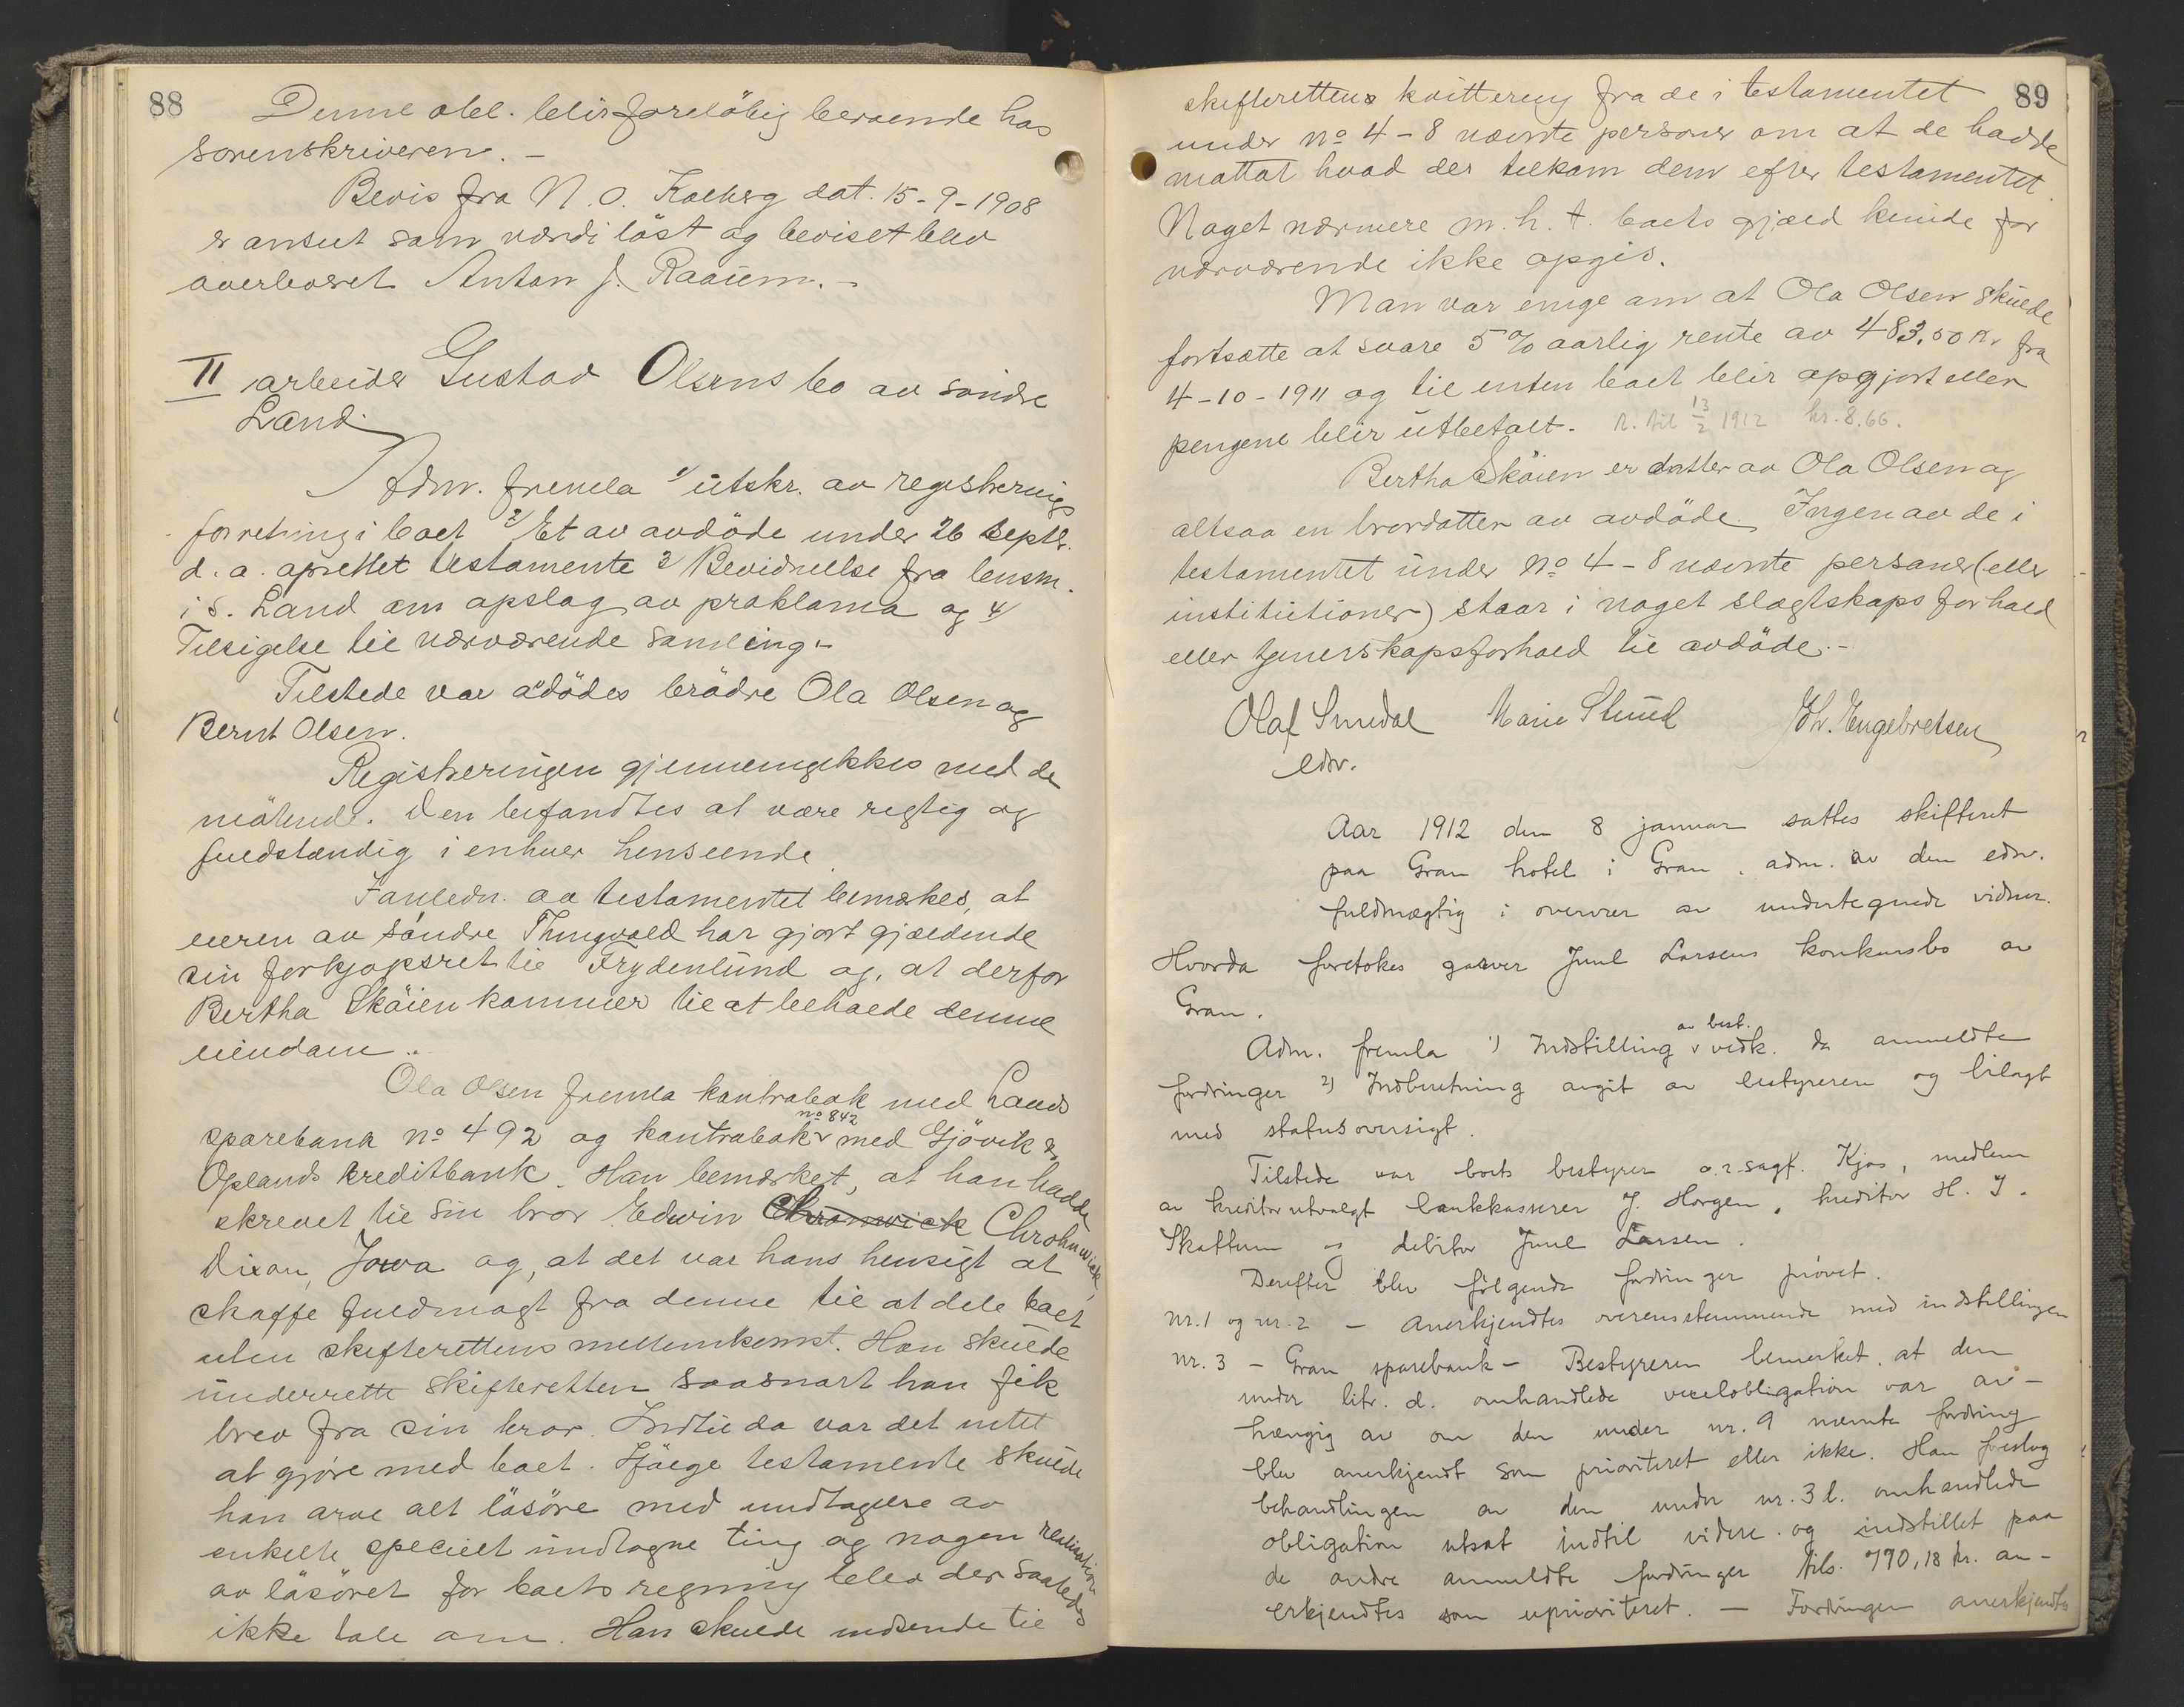 88
Denne obl. blir foreløbig beroende hos
sorenskriveren. -
Bevis fra N. O. Kolberg dat. 15-9-1908
er anseet som værdiløst og beviset blev
overleveret Anton J. Raaum. -
II arbeider Gustav Olsens bo av søndre
Land.
Adm. fremla 1/ utskr. av registrerings
forretning i boet 2/ Et av avdøde under 26 septbr.
d. a. oprettet testamente 3 Bevidnelse fra lensm.
i S. Land om opslag av proklama og 4/
Tilsigelse til nærværende samling. -
Tilstede var avdødes brødre Ola Olsen og
Bernt Olsen.
Registreringen gjennemgikkes med de
møtende. Den befandtes at være rigtig og
fuldstændig i enhver henseende.
I anledn. av testamentet bemerkes, at
eieren av søndre Thingvold har gjort gjældende
sin forkjøpsret til Frydenlund og, at derfor
Bertha Skøien kommer til at beholde denne
eiendom. -
Ola Olsen fremla kontrabok med Lands
sparebank no 492 og kontrabok no 842 med Gjøvik &
Oplands kreditbank. Han bemerket, at han hadde
skrevet til sin bror Edwin Chronwick Chrohnwick,
Dixon, Jowa og, at det var hans hensigt at
skaffe fuldmagt fra denne til at dele boet
uten skifterettens mellemkomst. Han skulde
underrette skifteretten saasnart han fik
brev fra sin bror. Indtil da var det intet
at gjøre med boet. Ifølge testamente skulde
han arve alt løsøre med undtagelse av
enkelte specielt undtagne ting og nogen realisation
av løsøret for boets regning blev der saaledes
ikke tale om. Han skulde indsende til
89
skifterettens kvittering fra de i testamentet
under no 4-8 nævnte personer om at de hadde
mottat hvad der tilkom dem efter testamentet.
Noget nærmere m. h. t. boets gjæld kunde for
nærværende ikke opgis.
Man var enige om at Ola Olsen skulde
fortsætte at svare 5 % aarlig rente av 483,50 kr fra
4-10-1911 og til enten boet blir opgjort eller
pengene blir utbetalt. R. til 13/2 1912 kr. 8.66.
Bertha Skøien er datter av Ola Olsen og
altsaa en brordatter av avdøde. Ingen av de i
testamentet under no 4-8 nævnte personer (eller
institutioner) staar i noget slegtskapsforhold
eller tjenerskapsforhold til avdøde. -
Olaf Smedal Marie Slund Joh. Engebretsen
edsv.
Aar 1912 den 8 januar sattes skifteret
paa Gran hotel i Gran, adm. av den edsv.
fuldmægtig i overvær av undertegnede vidner.
Hvorda foretokes garver Juul Larsens konkursbo av
Gran.
Adm. fremla 1) Indstilling av best. vedk. de anmeldte
fordringer 2) Indberetning avgit av bestyreren og bilagt
med statusoversigt.
Tilstede var boets bestyrer o.r.sagf. Kjos, medlem
av kreditorutvalget bankkasserer J. Horgen, kreditor H. J.
Skattum og debitor Juul Larsen.
Derefter blev følgende fordringer prøvet.
Nr. 1 og nr. 2 - Anerkjendtes overensstemmende med indstillingen
Nr. 3 - Gran sparebank - Bestyreren bemerket, at den
under litr. d. omhandlede vexelobligation var av-
hængig av om den under nr. 9 nævnte fordring
blev anerkjendt som prioriteret eller ikke. Han foreslog
behandlingen av den under nr. 3 l. omhandlede
obligation utsat indtil videre og indstillet paa
de andre anmeldte fordringer tils. 770,18 kr. an-
erkjendtes som uprioriteret. - Fordringen anerkjendtes